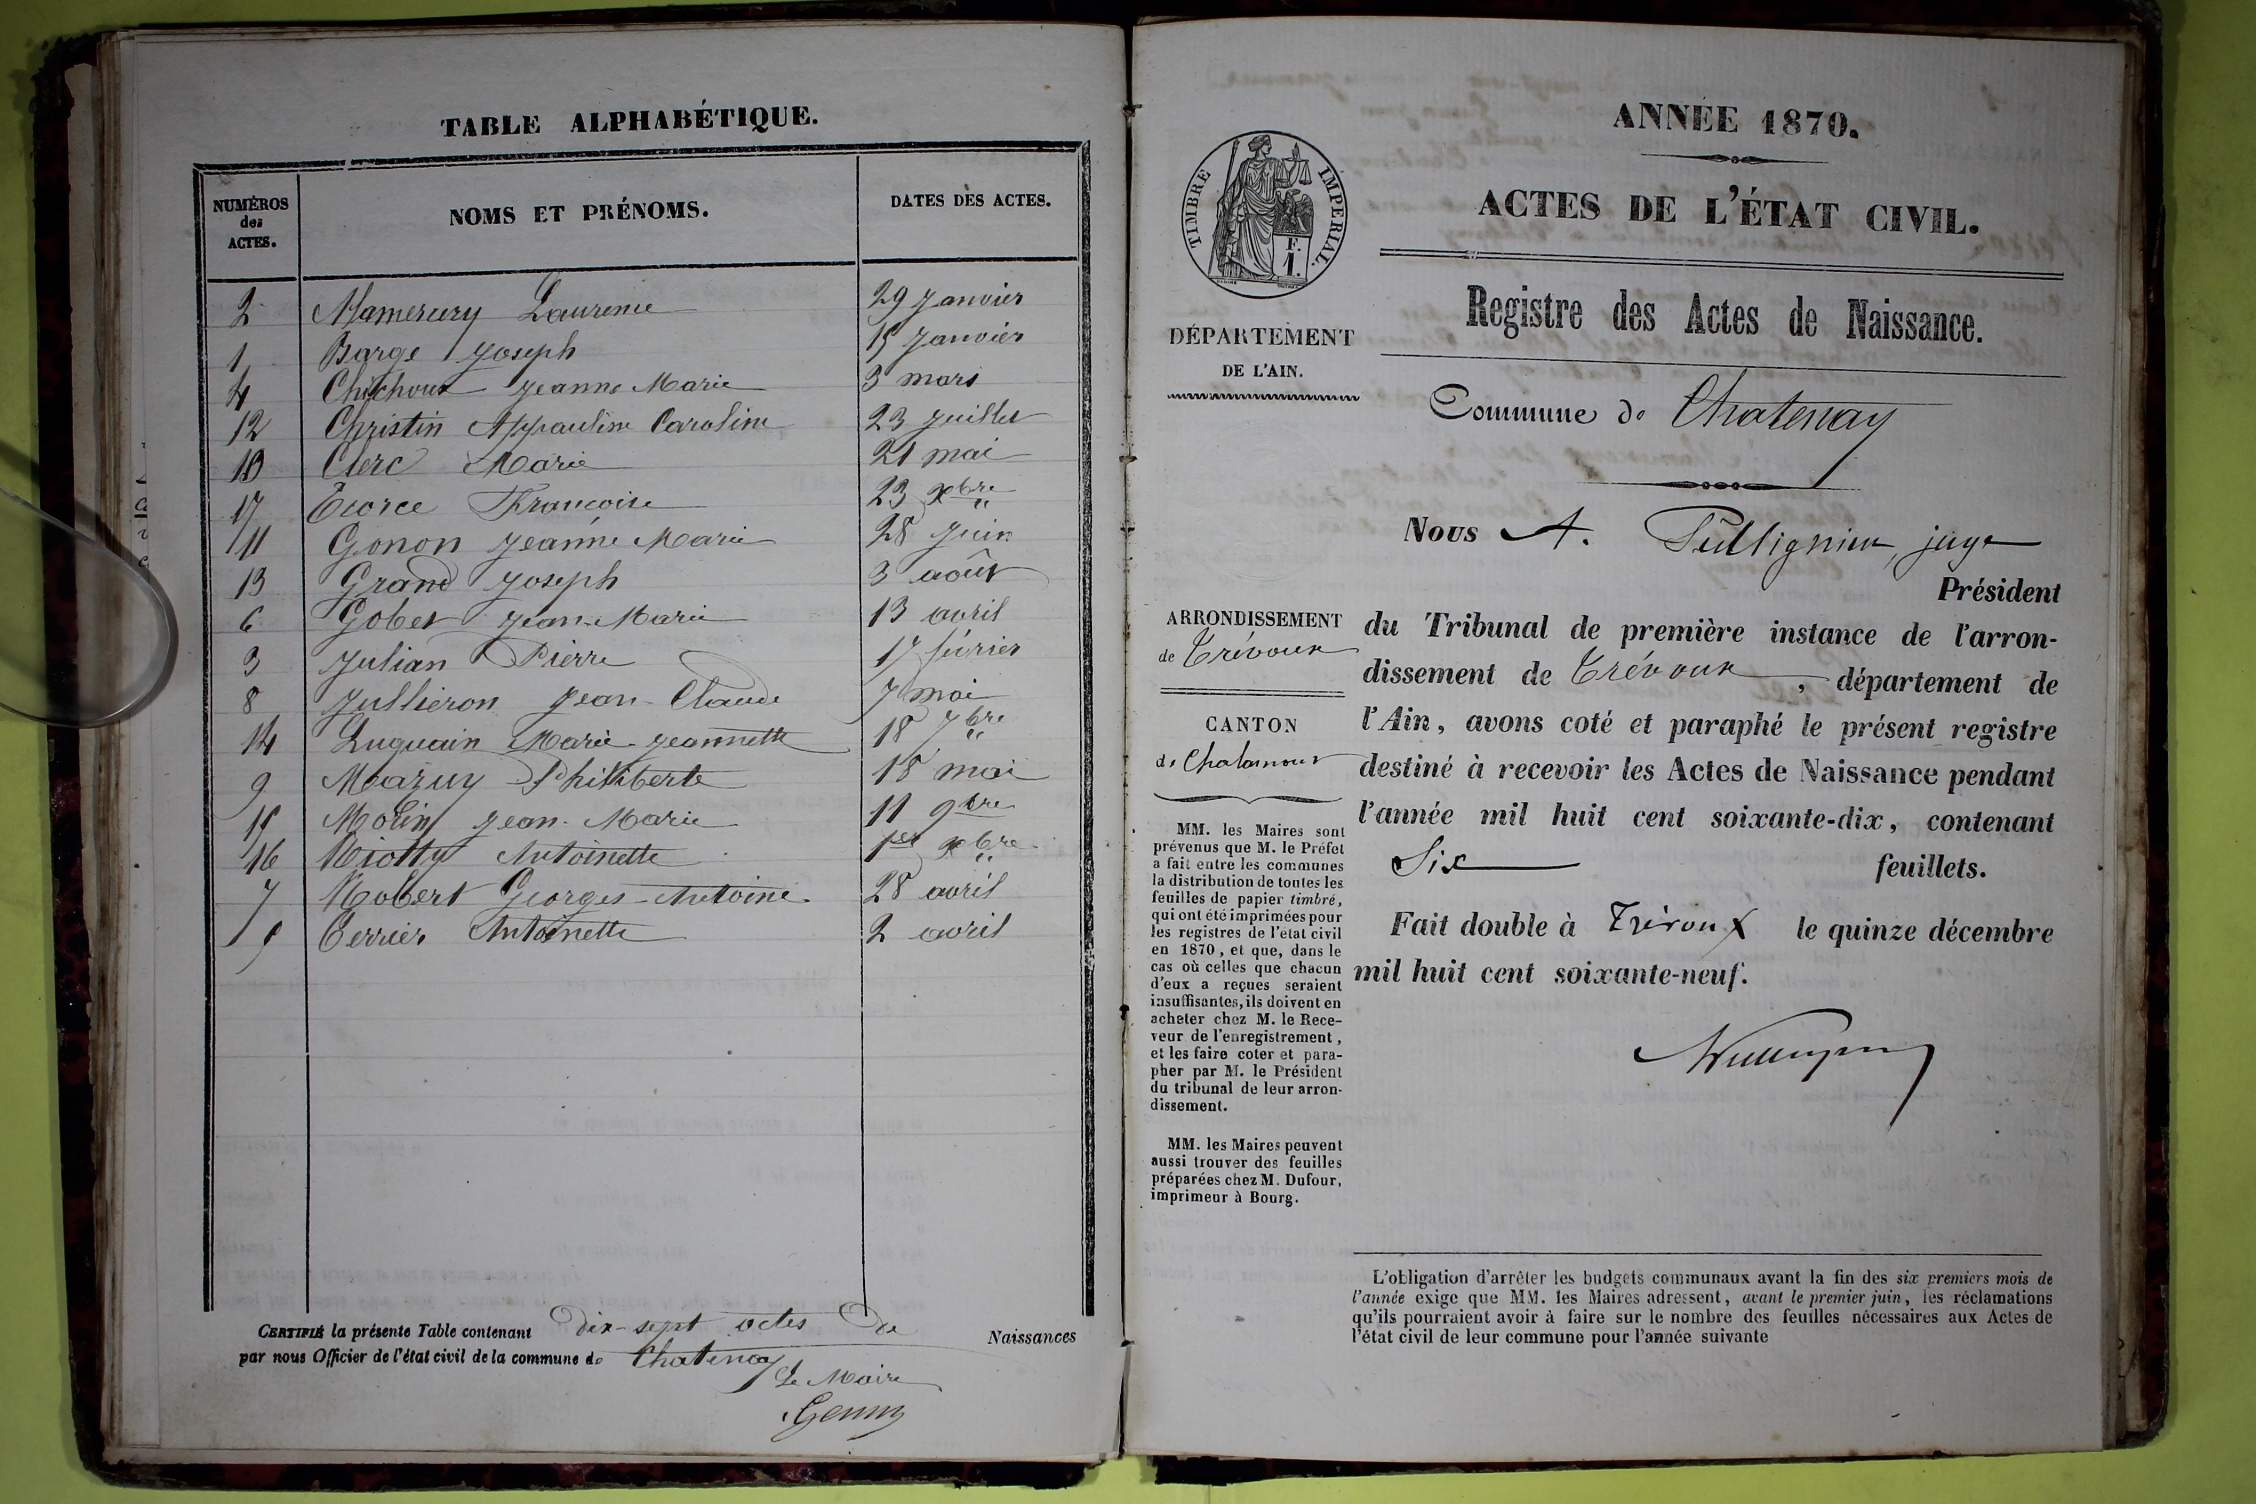 TABLE ALPHABÉTIQUE.
NUMÉROS des ACTES. NOMS ET PRÉNOMS. DATES DES ACTES.
2 Laurence 29 Janvier
1 Barge Joseph 15 Janvier
4 Jeanne Marie 3 mars
12 Christin Appauline Caroline 23 Juillet
10 Clerc Marie 21 mai
17 Ecorce Francoise 23 xbre
11 Gonon Jeanne Marie 28 Juin
13 Grand Joseph 3 août
6 Gobet Jean-Marie 13 avril
3 Julian Pierre 17 février
8 Jullieron Jean-Claude 7 mai
14 Luquain Marie-Jeannette 18 7bre
9 Mazuy Philiberte 18 mai
15 Molin Jean-Marie 11 9bre
16 Antoinette 1er xbre
7 Robert Georges-Antoine 28 avril
5 Terrier Antoinette 2 avril
CERTIFIÉ la présente Table contenant dix-sept actes de Naissances
par nous Officier de l'état civil de la commune de Chatenay
Le Maire
ANNÉE 1870.
ACTES DE L'ÉTAT CIVIL.
TIMBRE IMPÉRIAL.
F.
1.
DÉPARTEMENT
DE L'AIN.
Registre des Actes de Naissance.
Commune de Chatenay
ARRONDISSEMENT
de Trévoux
CANTON
de Chalamont
MM. les Maires sont
prévenus que M. le Préfet
a fait entre les communes
la distribution de toutes les
feuilles de papier timbré,
qui ont été imprimées pour
les registres de l'état civil
en 1870, et que, dans le
cas où celles que chacun
d'eux a reçues seraient
insuffisantes, ils doivent en
acheter chez M. le Rece-
veur de l'enregistrement,
et les faire coter et para-
pher par M. le Président
du tribunal de leur arron-
dissement.
MM. les Maires peuvent
aussi trouver des feuilles
préparées chez M. Dufour,
imprimeur à Bourg.
Nous A. juge
Président
du Tribunal de première instance de l'arron-
dissement de Trévoux, département de
l'Ain, avons coté et paraphé le présent registre
destiné à recevoir les Actes de Naissance pendant
l'année mil huit cent soixante-dix, contenant
Six feuillets.
Fait double à Trévoux le quinze décembre
mil huit cent soixante-neuf.
L'obligation d'arrêter les budgets communaux avant la fin des six premiers mois de
l'année exige que MM. les Maires adressent, avant le premier juin, les réclamations
qu'ils pourraient avoir à faire sur le nombre des feuilles nécessaires aux Actes de
l'état civil de leur commune pour l'année suivante